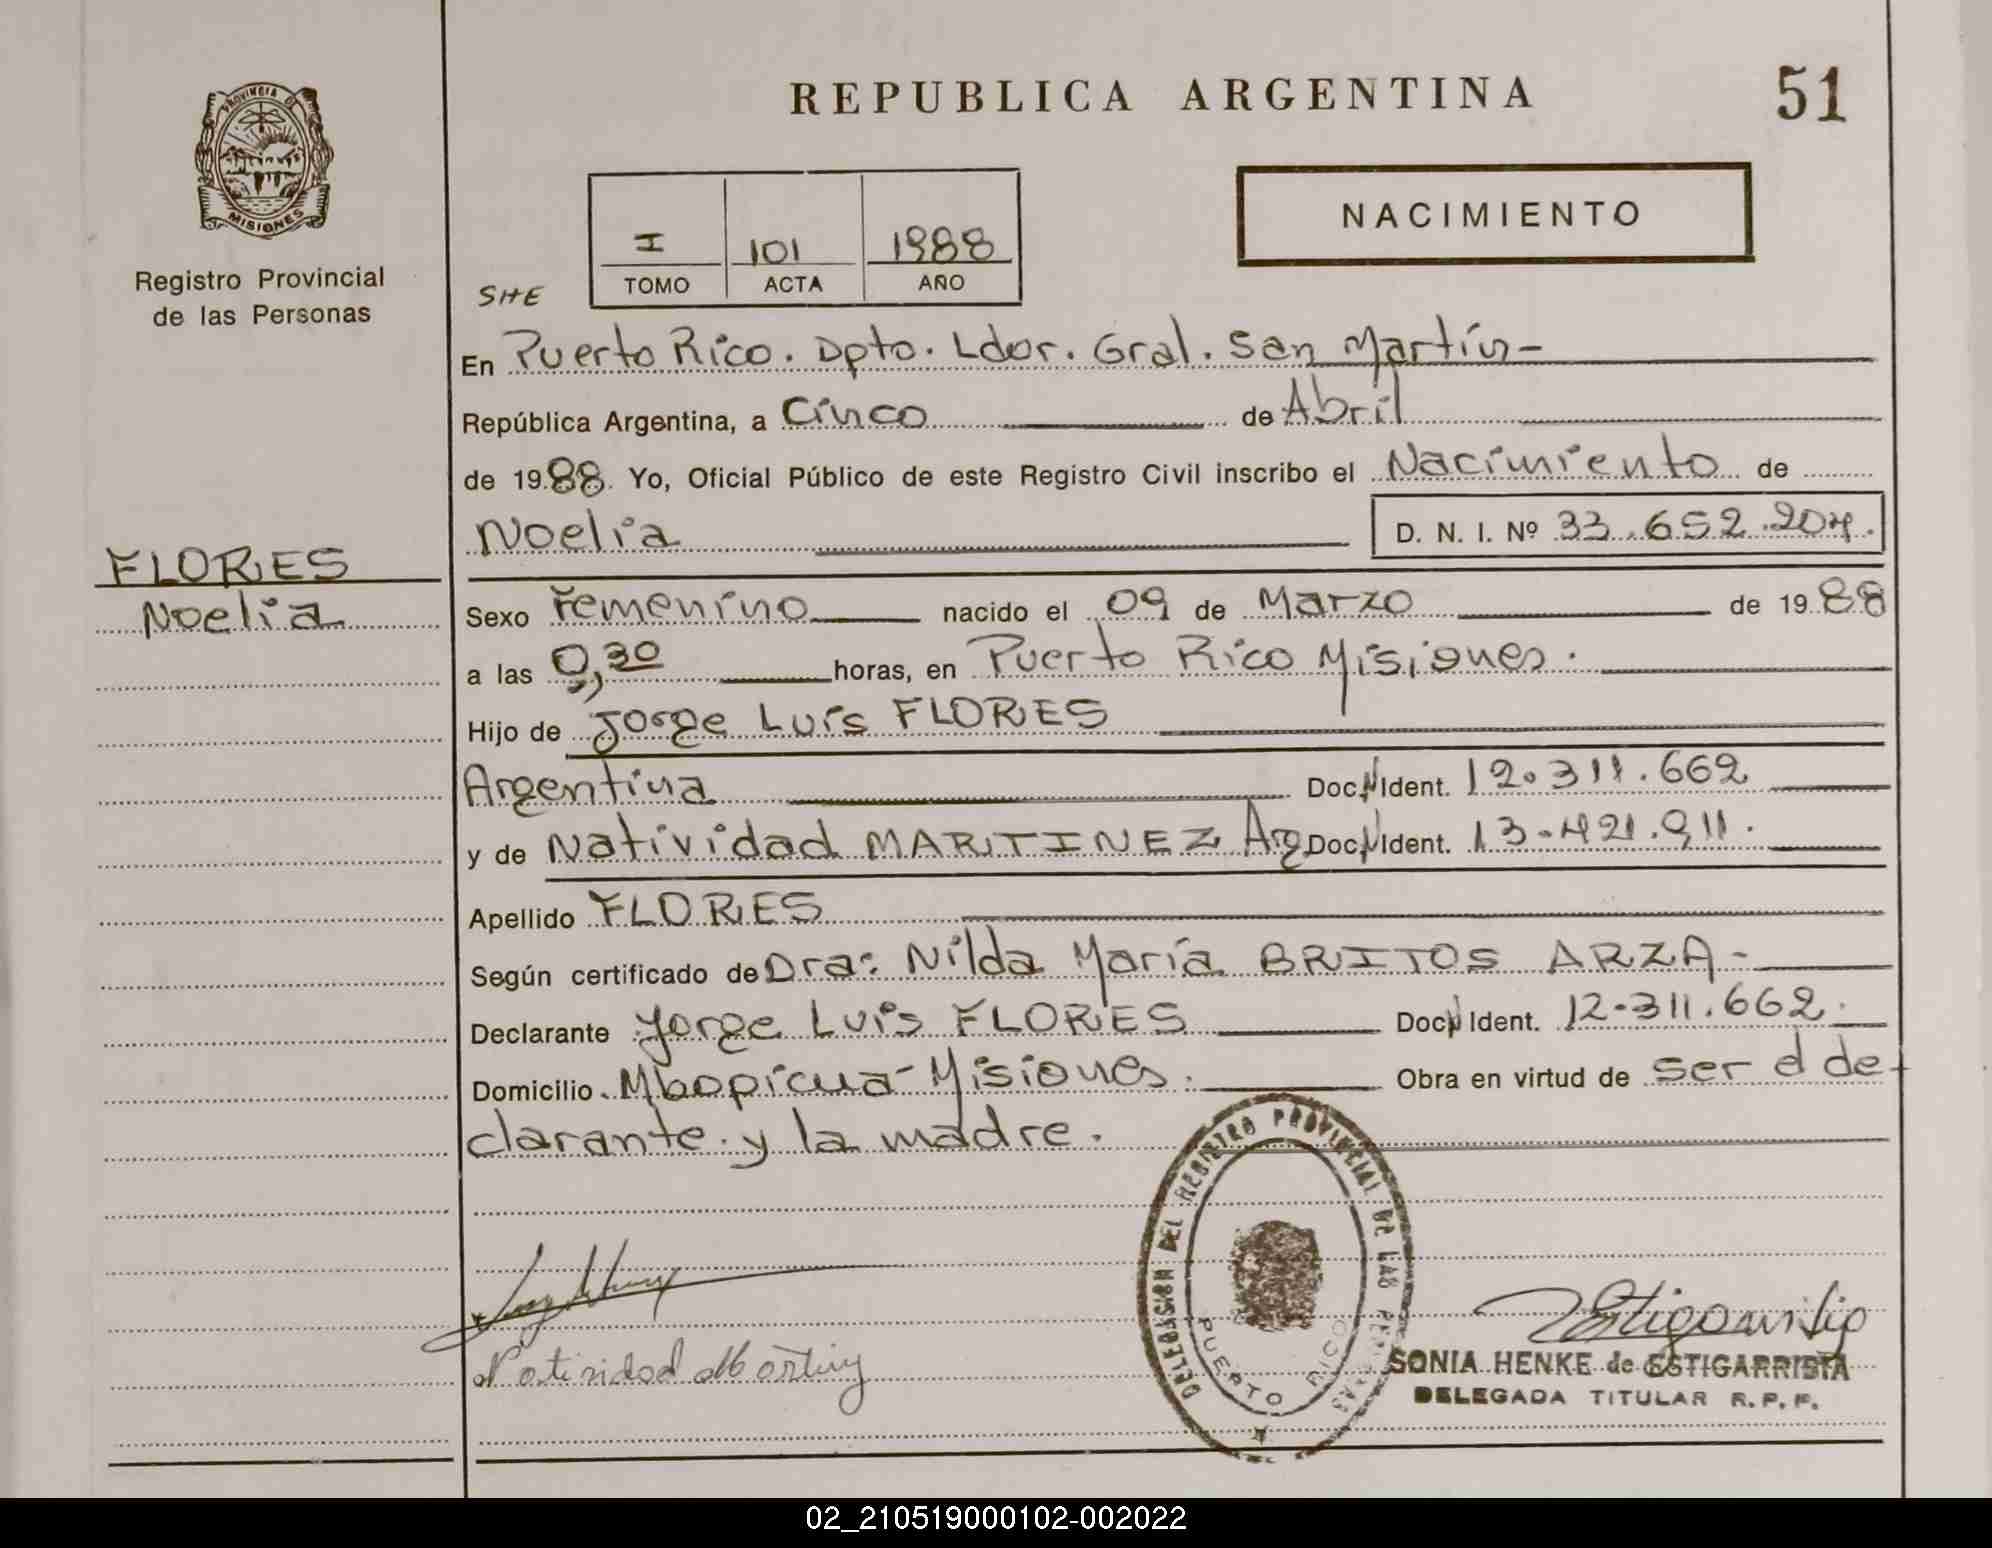 REPUBLICA ARGENTINA
51
PROVINCIA DE
MISIONES
Registro Provincial
de las Personas
I 101 1988
TOMO ACTA AÑO
NACIMIENTO
SHE
En Puerto Rico. Dpto. Ldor. Gral. San Martín-
República Argentina, a Cinco de Abril
de 1988 Yo, Oficial Público de este Registro Civil inscribo el Nacimiento de
Noelia D. N. I. Nº 33.652.204.
FLORES
Noelia
Sexo Femenino nacido el 09 de Marzo de 1988
a las 0,30 horas, en Puerto Rico Misiones.
Hijo de Jorge Luis FLORES
Argentina Doc. Ident. 12.311.662
y de Natividad MARTINEZ Arg Doc. Ident. 13.421.911.
Apellido FLORES
Según certificado de Dra: Nilda María BRITOS ARZA-
Declarante Jorge Luis FLORES Doc. Ident. 12.311.662.
Domicilio. Mbopicua-Misiones. Obra en virtud de ser el de-
clarante. y la madre.
DELEGACION DEL REGISTRO PROVINCIAL DE LAS PERSONAS
PUERTO RICO
Natividad Martinez
SONIA HENKE de ESTIGARRIBIA
DELEGADA TITULAR R.P.P.
02_210519000102-002022